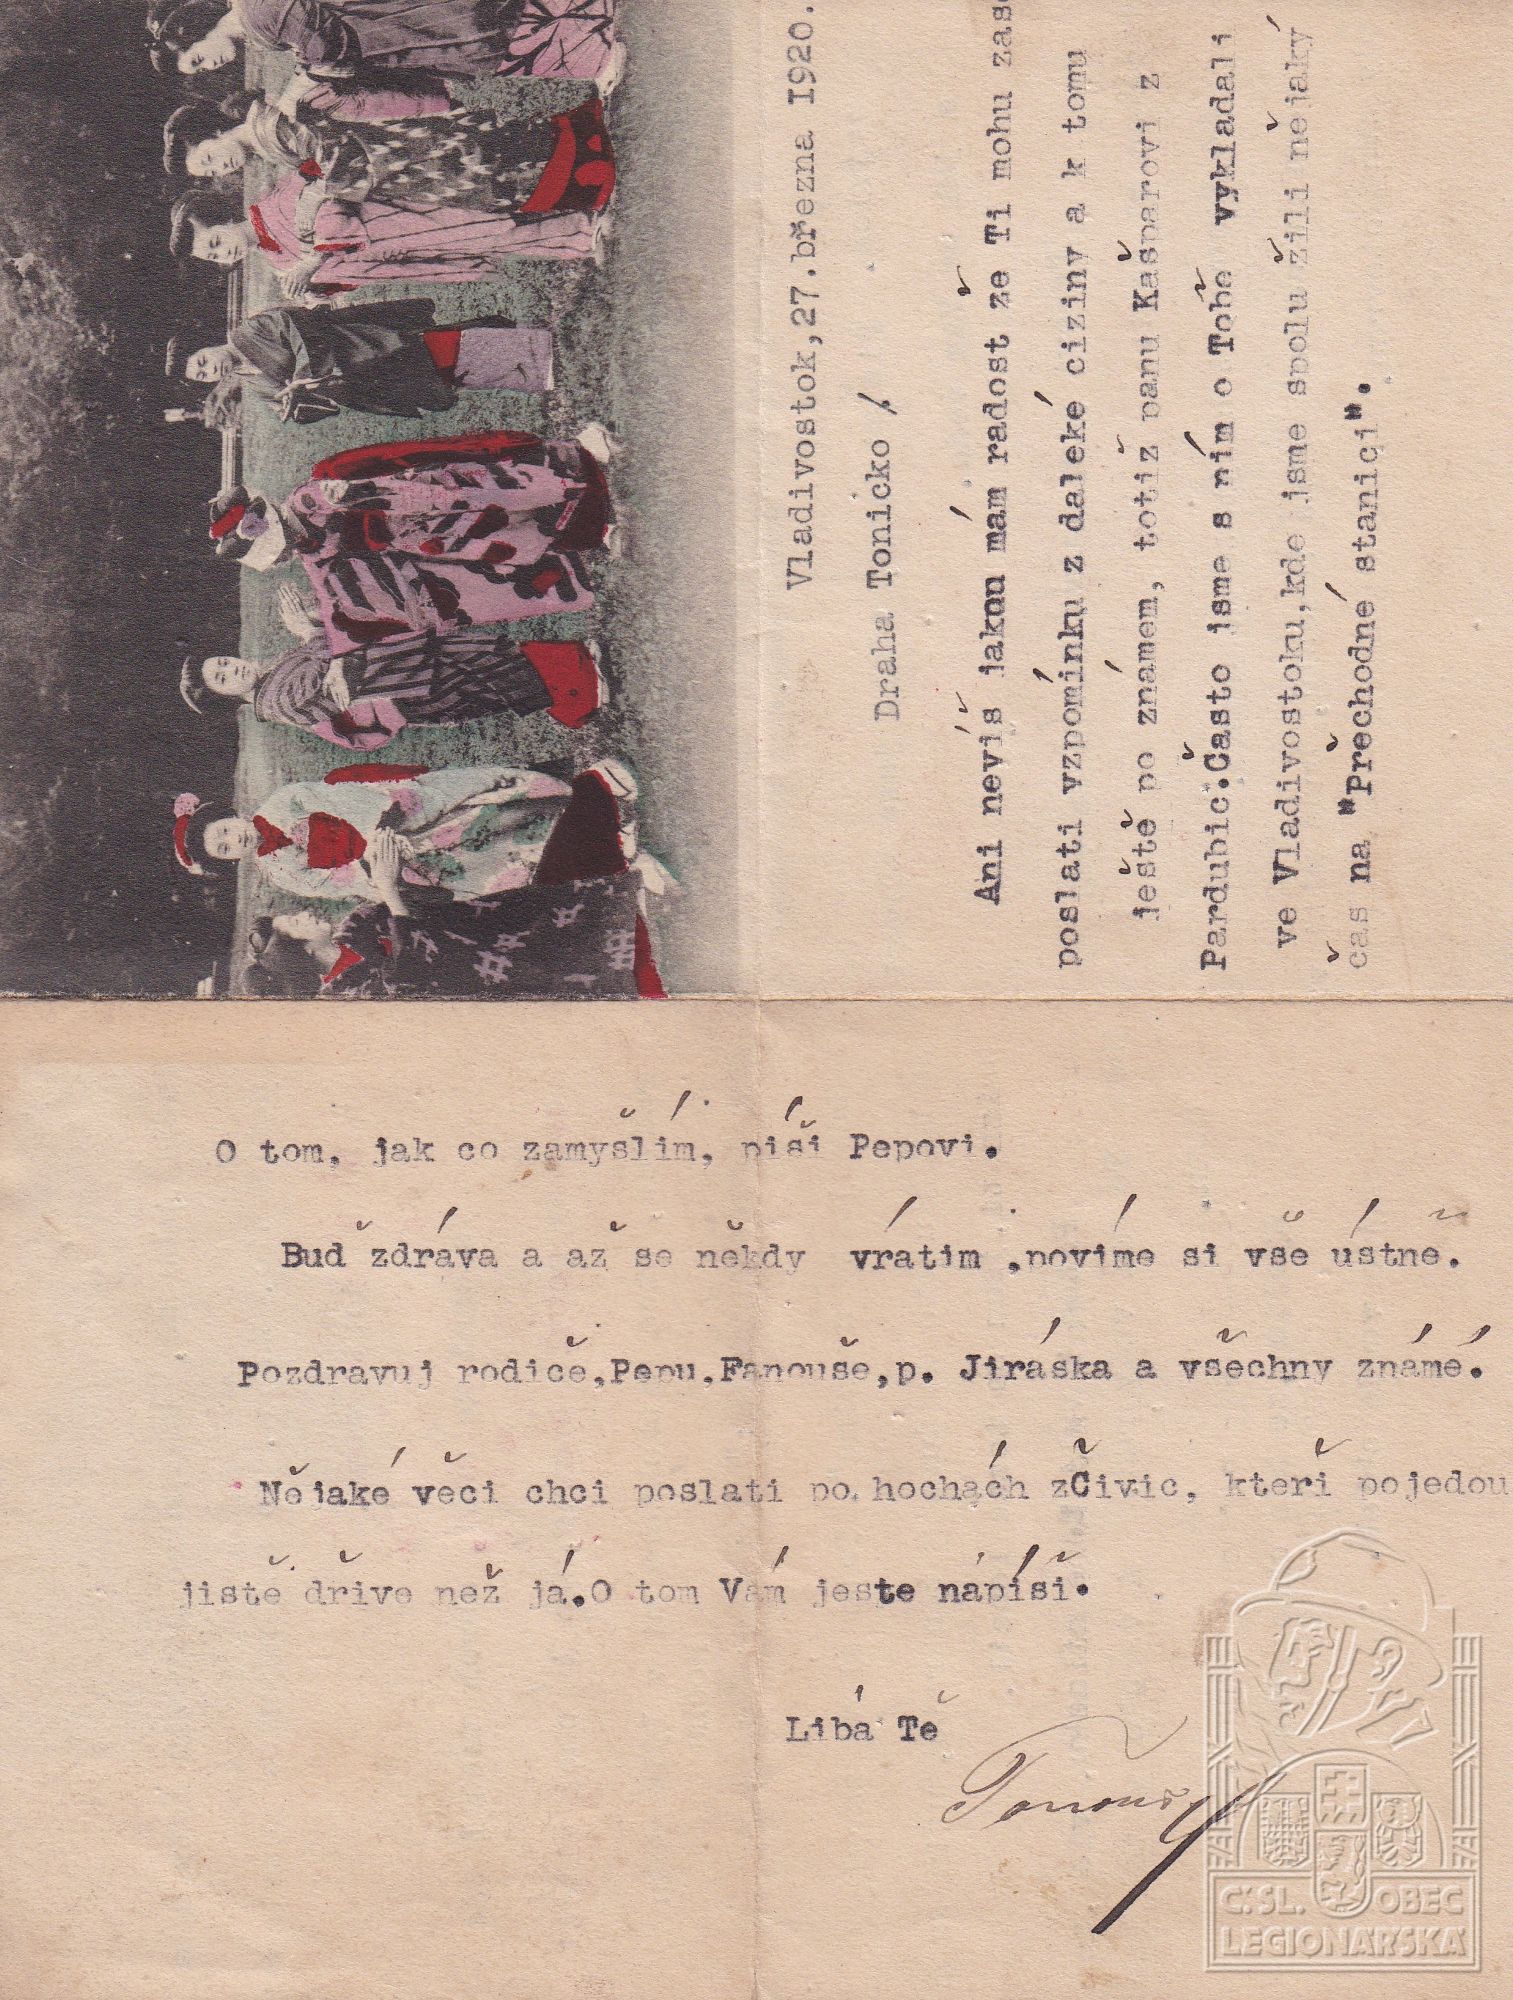 Vladivostok,27.března I920.
Draha Tonicko !
Ani nevíš jakou mám radost že Ti mohu zase
poslati vzpomínku z daleké ciziny a k tomu
ještě po známem, totiž panu Kašparovi z
Pardubic.Často jsme s ním o Tobě vykladali
ve Vladivostoku,kde jsme spolu žili nějaký
čas na "Přechodné stanici".
O tom, jak co zamyšlím, píši Pepovi.
Buď zdráva a až se někdy vrátim ,povíme si vše ústně.
Pozdravuj rodiče,Pepu,Fanouše,p. Jiráska a všechny známé.
Nějaké věci chci poslati po hochách zČivic, kteří pojedou
jistě dřive než já.O tom Vám jeste nápíši.
Libá Tě
Tonouš
Č.SL. OBEC
LEGIONÁŘSKÁ